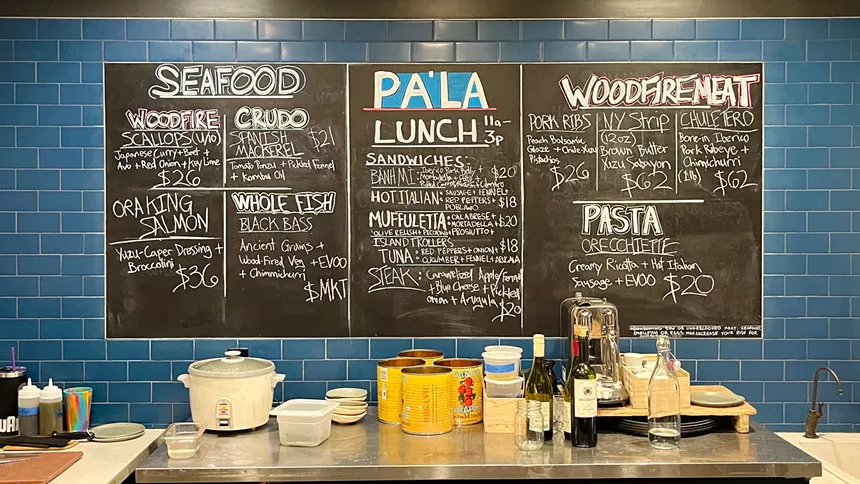 SEAFOOD
WOODFIRE
SCALLOPS (U/10)
Japanese Curry + Beet +
Avo + Red Onion + Key Lime
$26
CRUDO
SPANISH
MACKEREL
$21
Tomato Ponzu + Pickled Fennel
+ Kombu Oil
ORA KING
SALMON
Yuzu-Caper Dressing +
Broccolini
$36
WHOLE FISH
BLACK BASS
Ancient Grains +
Wood-Fired Veg + EVOO
+ Chimmichurri
$MKT
PA'LA
LUNCH 11a-
3p
SANDWICHES:
BANH MI: Iberico Pork Belly +
$20
HOT ITALIAN: SAUSAGE + FENNEL +
RED PEPPERS +
POBLANO
$18
MUFFULETTA: CALABRESE +
MORTADELLA +
OLIVE RELISH + PECORINO + PROSIUTTO +
$20
ISLAND TROLLERS
TUNA: RED PEPPERS + ONION +
CUCUMBER + FENNEL + ARUGALA
$18
STEAK: Caramelized Apple/Fennel
+ Blue Cheese + Pickled
onion + Arugula
$20
WOODFIRE MEAT
PORK RIBS
Peach Balsamic
Glaze + Chile Yuzu
Pistachios
$26
NY STRIP
(12oz)
Brown Butter
Yuzu Sabayon
$62
CHULETERO
Bone-in Iberico
Pork Ribeye +
Chimichurri
(1lb)
$62
PASTA
ORECCHIETTE
Creamy Ricotta + Hot Italian
Sausage + EVOO
$20
RAW OR UNDERCOOKED MEAT, SEAFOOD
SHELLFISH OR EGGS MAY INCREASE YOUR RISK FOR